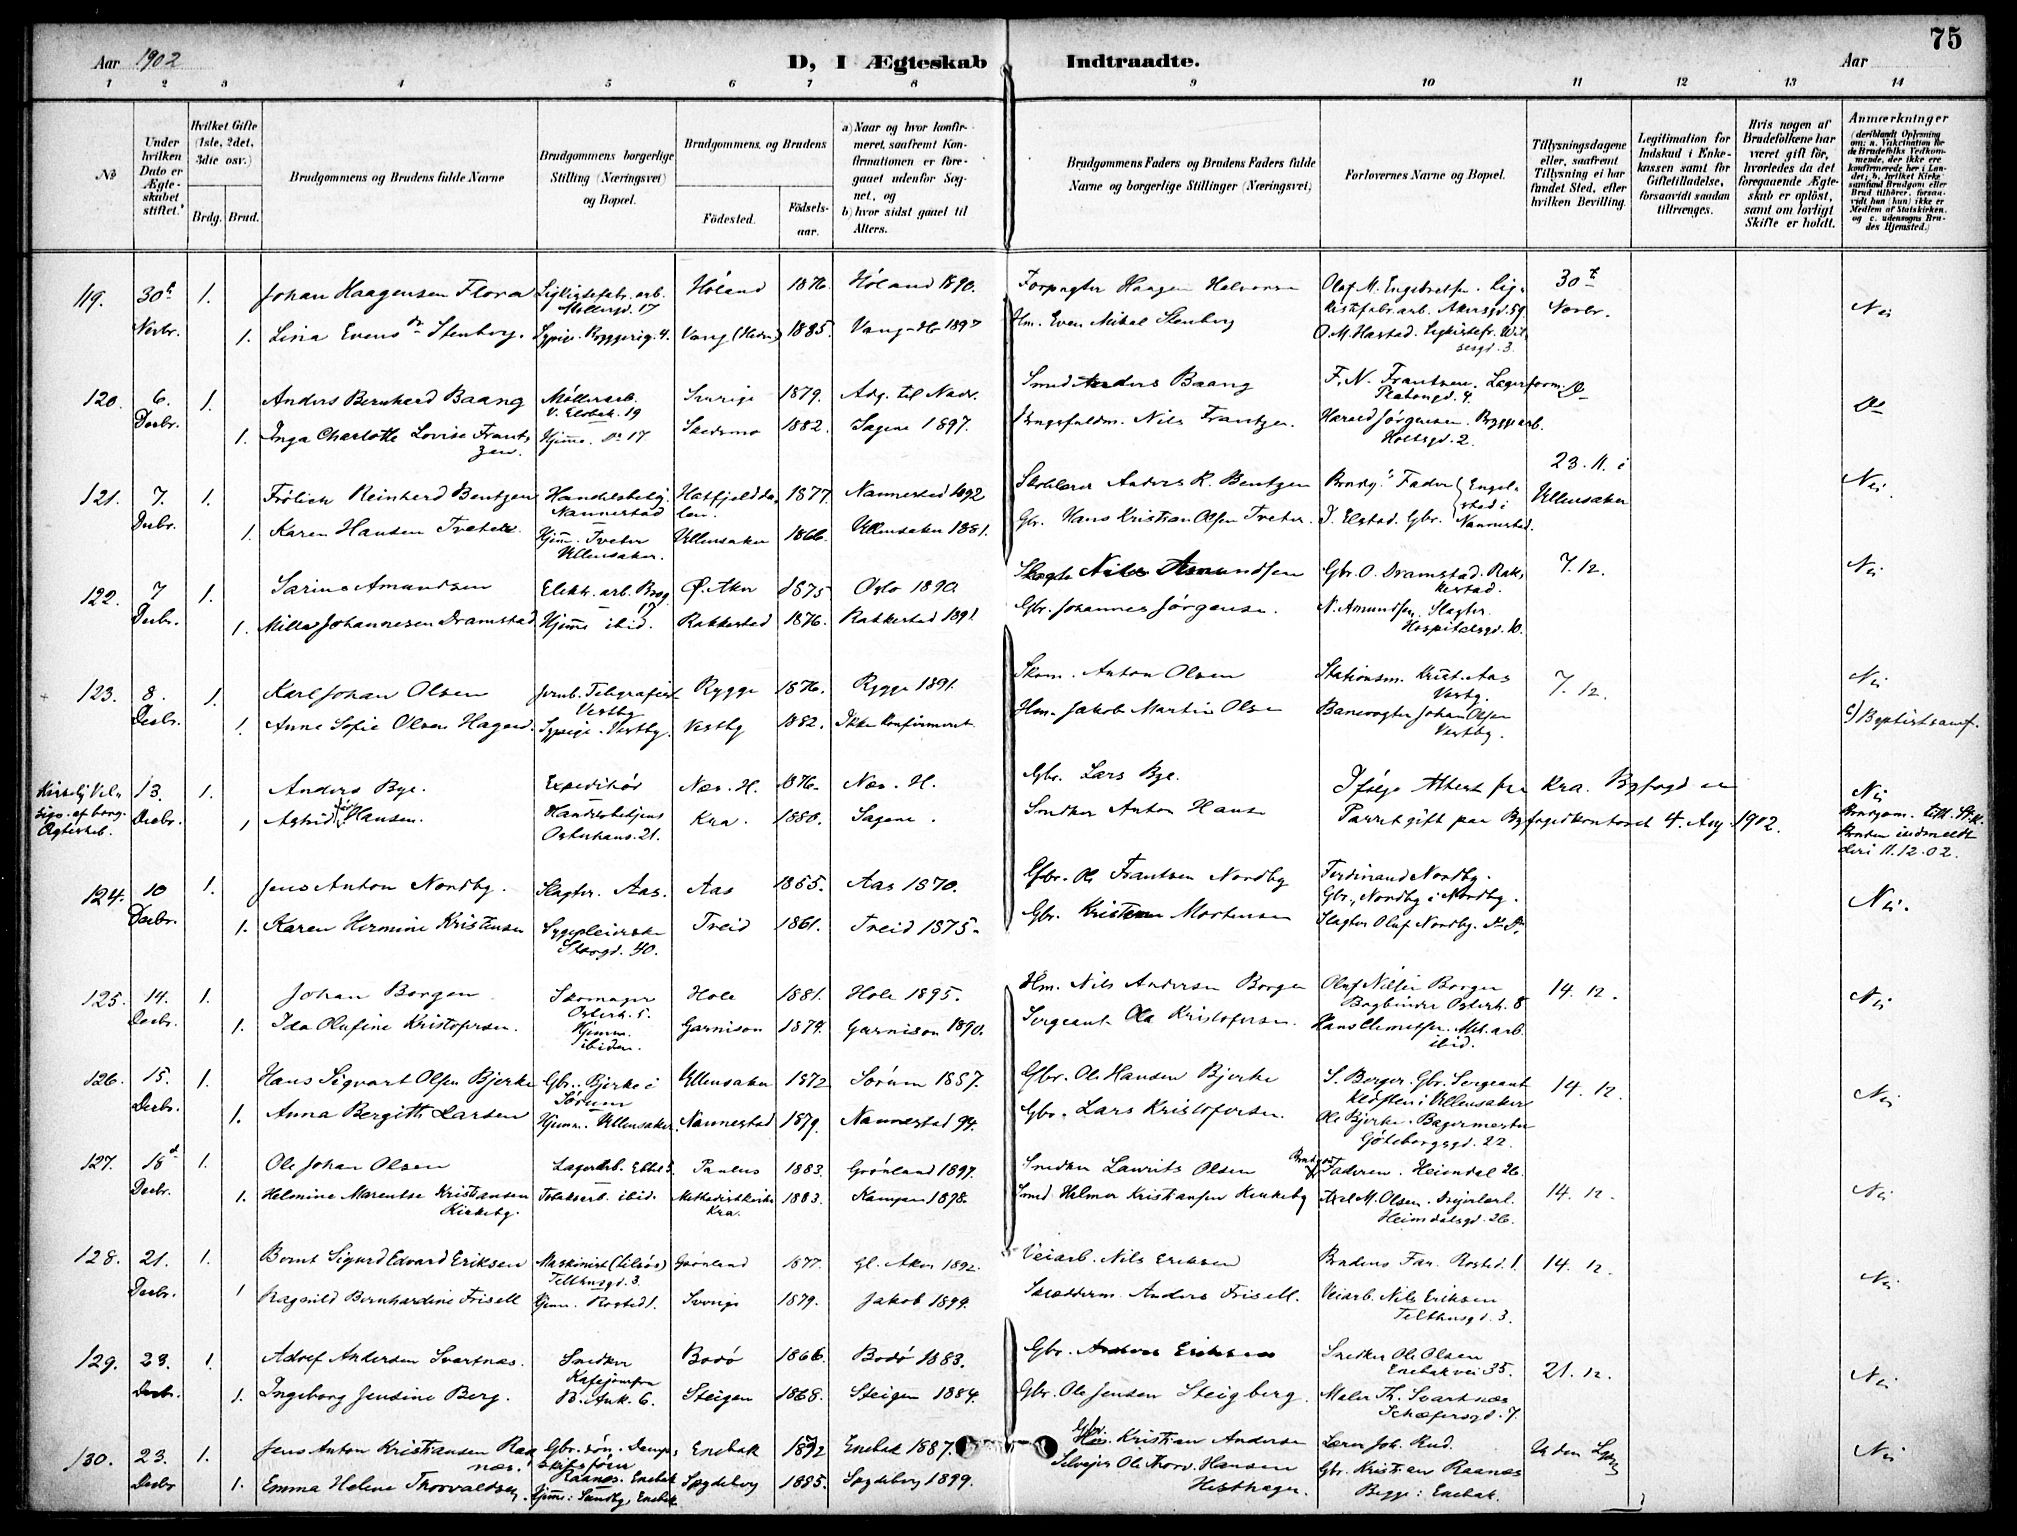 75
Aar 1902
D, I Ægteskab Indtraadte.
Aar
1 2 3 4 5 6 7 8 9 10 11 12 13 14
No
Under hvilken Dato er Ægteskabet stiftet.
Hvilket Gifte (1ste, 2det, 3die osv.)
Brdg. Brud.
Brudgommens og Brudens fulde Navne
Brudgommens borgerlige Stilling (Næringsvei) og Bopæl.
Brudgommens og Brudens
Födested.
Födsels-aar.
a) Naar og hvor konfirmeret, saafremt Konfirmationen er foregaaet udenfor Sognet, og
b) hvor sidst gaaet til Alters.
Brudgommens Faders og Brudens Faders fulde Navne og borgerlige Stillinger (Næringsvei)
Forlovernes Navne og Bopæl.
Tillysningsdagene eller, saafremt Tillysning ei har fundet Sted, efter hvilken Bevilling.
Legitimation for Indskud i Enkekassen samt for Giftetilladelse, forsaavidt saadan tiltrænges.
Hvis nogen af Brudefolkene har været gift før, hvorledes da det foregaaende Ægteskab er oplöst, samt om lovligt Skifte er holdt.
Anmærkninger
119. 30t 1. Johan Haagensen Flora Høland 1876 Høland 1890. Forpagter Haagen Halvorsen 30t Nei
Novbr. 1. Lina Evensdr Stenberg. Sypige. Vang (Hedm) 1885. Vang 1897 Hm. Even Mikal Stenberg Novbr.
120. 6. 1. Anders Bernhard Baang Møllerarb. Sverige 1879. Adg. til Nadv. Smed Anders Baang F. N. Frantsen. Lagerform. Do
Decbr. V. Elvebak. 19
1. Inga Charlotte Lovise Frantzen. Hjemme. Do 17 Skedsmo 1882. Sagene 1897. Nils Frantzen. Harald Jørgensen. Byggearb.
Holtsgd. 2.
121. 7. 1. Frölich Reinherd Bentzen Nannestad Hatfjelddalen. 1877 Nannestad 1892 Anders R. Bentzen Brudg. Fader 23.11. i Ullensaker Nei
Decbr. 1. Karen Hansen Tveter Hjem. Tveter Ullensaker. Ullensaker 1866 Ullensaker 1881. Gbr. Hans Kristian Olsen Tveter. Elstad. Gbr. Nannestad.
122. 7 1. Amundsen Elektr. arb. Ø. Aker 1875 Oslo 1890 Nils Amundsen Gbr. O. Dramstad. Rakkestad. 7.12. Nei
Decbr. 1. Milla Johannesen Dramstad Hjemme ibid. Rakkestad 1876. Rakkestad 1891 Gbr. Johannes Jørgensen. N. Amundsen, Slagter.
Hospitalsgd. 10.
123. 8. 1. Karl Johan Olsen Jernb. Telegrafist Vestby Rygge 1876. Rygge 1891. Skom. Anton Olsen Stationsm. Krist. Aas Vestby. 7.12. Nei
Decbr. 1. Anne Sofie Olsen Hagen. Sypige. Vestby. Vestby 1882. Ikke konfirmeret Hm. Jakob Martin Olsen Banevogter Johan Olsen Vestby. c) Baptistsamf.
Kirkelig Velsign. af borg. Ægteskab.
13. 1. Anders Bye. Expeditør Næs. H. 1876. Næs. H. Gbr. Lars Bye. Ifølge Attest fra Kra. Byfogd er Nei
Decbr. 1 Astrid Hansen. Handelsbetjent Osterhaus. 21. Kra. 1880. Sagene. Snedker Anton Hansen Parret gift paa Byfogedkontoret 4. Aug. 1902.
Bruden indmeldt deri 11.12.02.
124. 10 1. Jens Anton Nordby. Slagter. Aas. Aas 1855. Aas 1870. Gbr. Ole Frantsen Nordby Ferdinand Nordby. Gbr., Nordby i Nordby. Nei.
Decbr. 1. Karen Hermine Kristiansen Sygepleierske Storgd. 40. Treid 1861. Treid 1875. Gbr. Kristen Mortensen Slagter Oluf Nordby. Do Do
125. 14. 1. Johan Borgen Skomager Osterh. 5. Hole 1881. Hole 1895. Hm. Nils Andersen Borgen Oluf Nilsen Borgen Bogbinder Osterh. 8 14.12. Nei
Decbr. 1. Ida Olufine Kristofersen. Hjemm. ibiden. Garnison 1874. Garnison 1890. Sergeant Ola Kristofersen. Hans Clemetsen. Met. arb. ibid.
126. 15. 1. Hans Sigvart Olsen Bjerke Gbr. Bjerke i Sørum Ullensaker 1872 Sørum 1887. Gbr. Ole Hansen Bjerke S. Berger. Gbr. Sergeant Kløften i Ullensaker 14.12. Nei
Decbr. 1. Anna Bergitte Larsen Hjemm. Ullensaker. Nannestad 1879. Nannestad 94. Gbr. Lars Kristofersen. Ole Bjerke. Bagermester
Göteborgsgd. 22.
127. 18d 1. Ole Johan Olsen Lagerarb. Paulus 1883. Grønland 1897. Snedker Laurits Olsen Faderen. Heimdal 26. 14.12. Nei
Decbr. 1. Helmine Marentse Kristiansen Kirkeby. Tobaksarb. ibid. Methodistkirke Kra. 1883. Kampen 1898. Smed Helmer Kristiansen Kirkeby Axel M. Olsen.
Heimdalsgd. 26.
128. 21. 1. Bernt Sigurd Edvard Eriksen Maskinist (tilsøs) Telthusgd. 3. Grønland 1877. Gl. Aker 1892. Veiarb. Nils Eriksen Brudens Far. Rosted. 1. 14.12. Nei
Decbr. 1 Ragnhild Bernhardine Frisell Hjem. Rosted 1. Sverige 1879. Jakob 1894. Skræderm. Anders Frisell. Veiarb. Nils Eriksen
Telthusgd. 3.
129. 23. 1. Adolf Andersen Svartnæs. Snedker Bodø 1866. Bodø 1883. Gbr. Anders Eriksen Snedker Ole Olsen Enebakvei 35. 21.12. Nei
Decbr. 1. Ingeborg Jensine Berg. Kafejomfru B. Ank. 6. Steigen 1868. Steigen 1884. Gbr. Ole Jensen Steigberg. Maler Th. Svartnæs
Schæfersgd. 7.
130. 23. 1. Jens Anton Kristiansen Raanæs. Gbr. søn. Raanæs. Enebak Enebak 1872 Enebak 1887. Gbr. Kristian Andersen Lærer Joh. Rud. Uden Lysn Nei
Decbr 1. Emma Helene Thorvaldsen. Hjem: Sundby, Enebak Spydeberg 1885. Spydeberg 1899. Selveier Ole Thorv. Hansen Hesthagen. Gbr. Kristian Raanæs
Begge: Enebak.